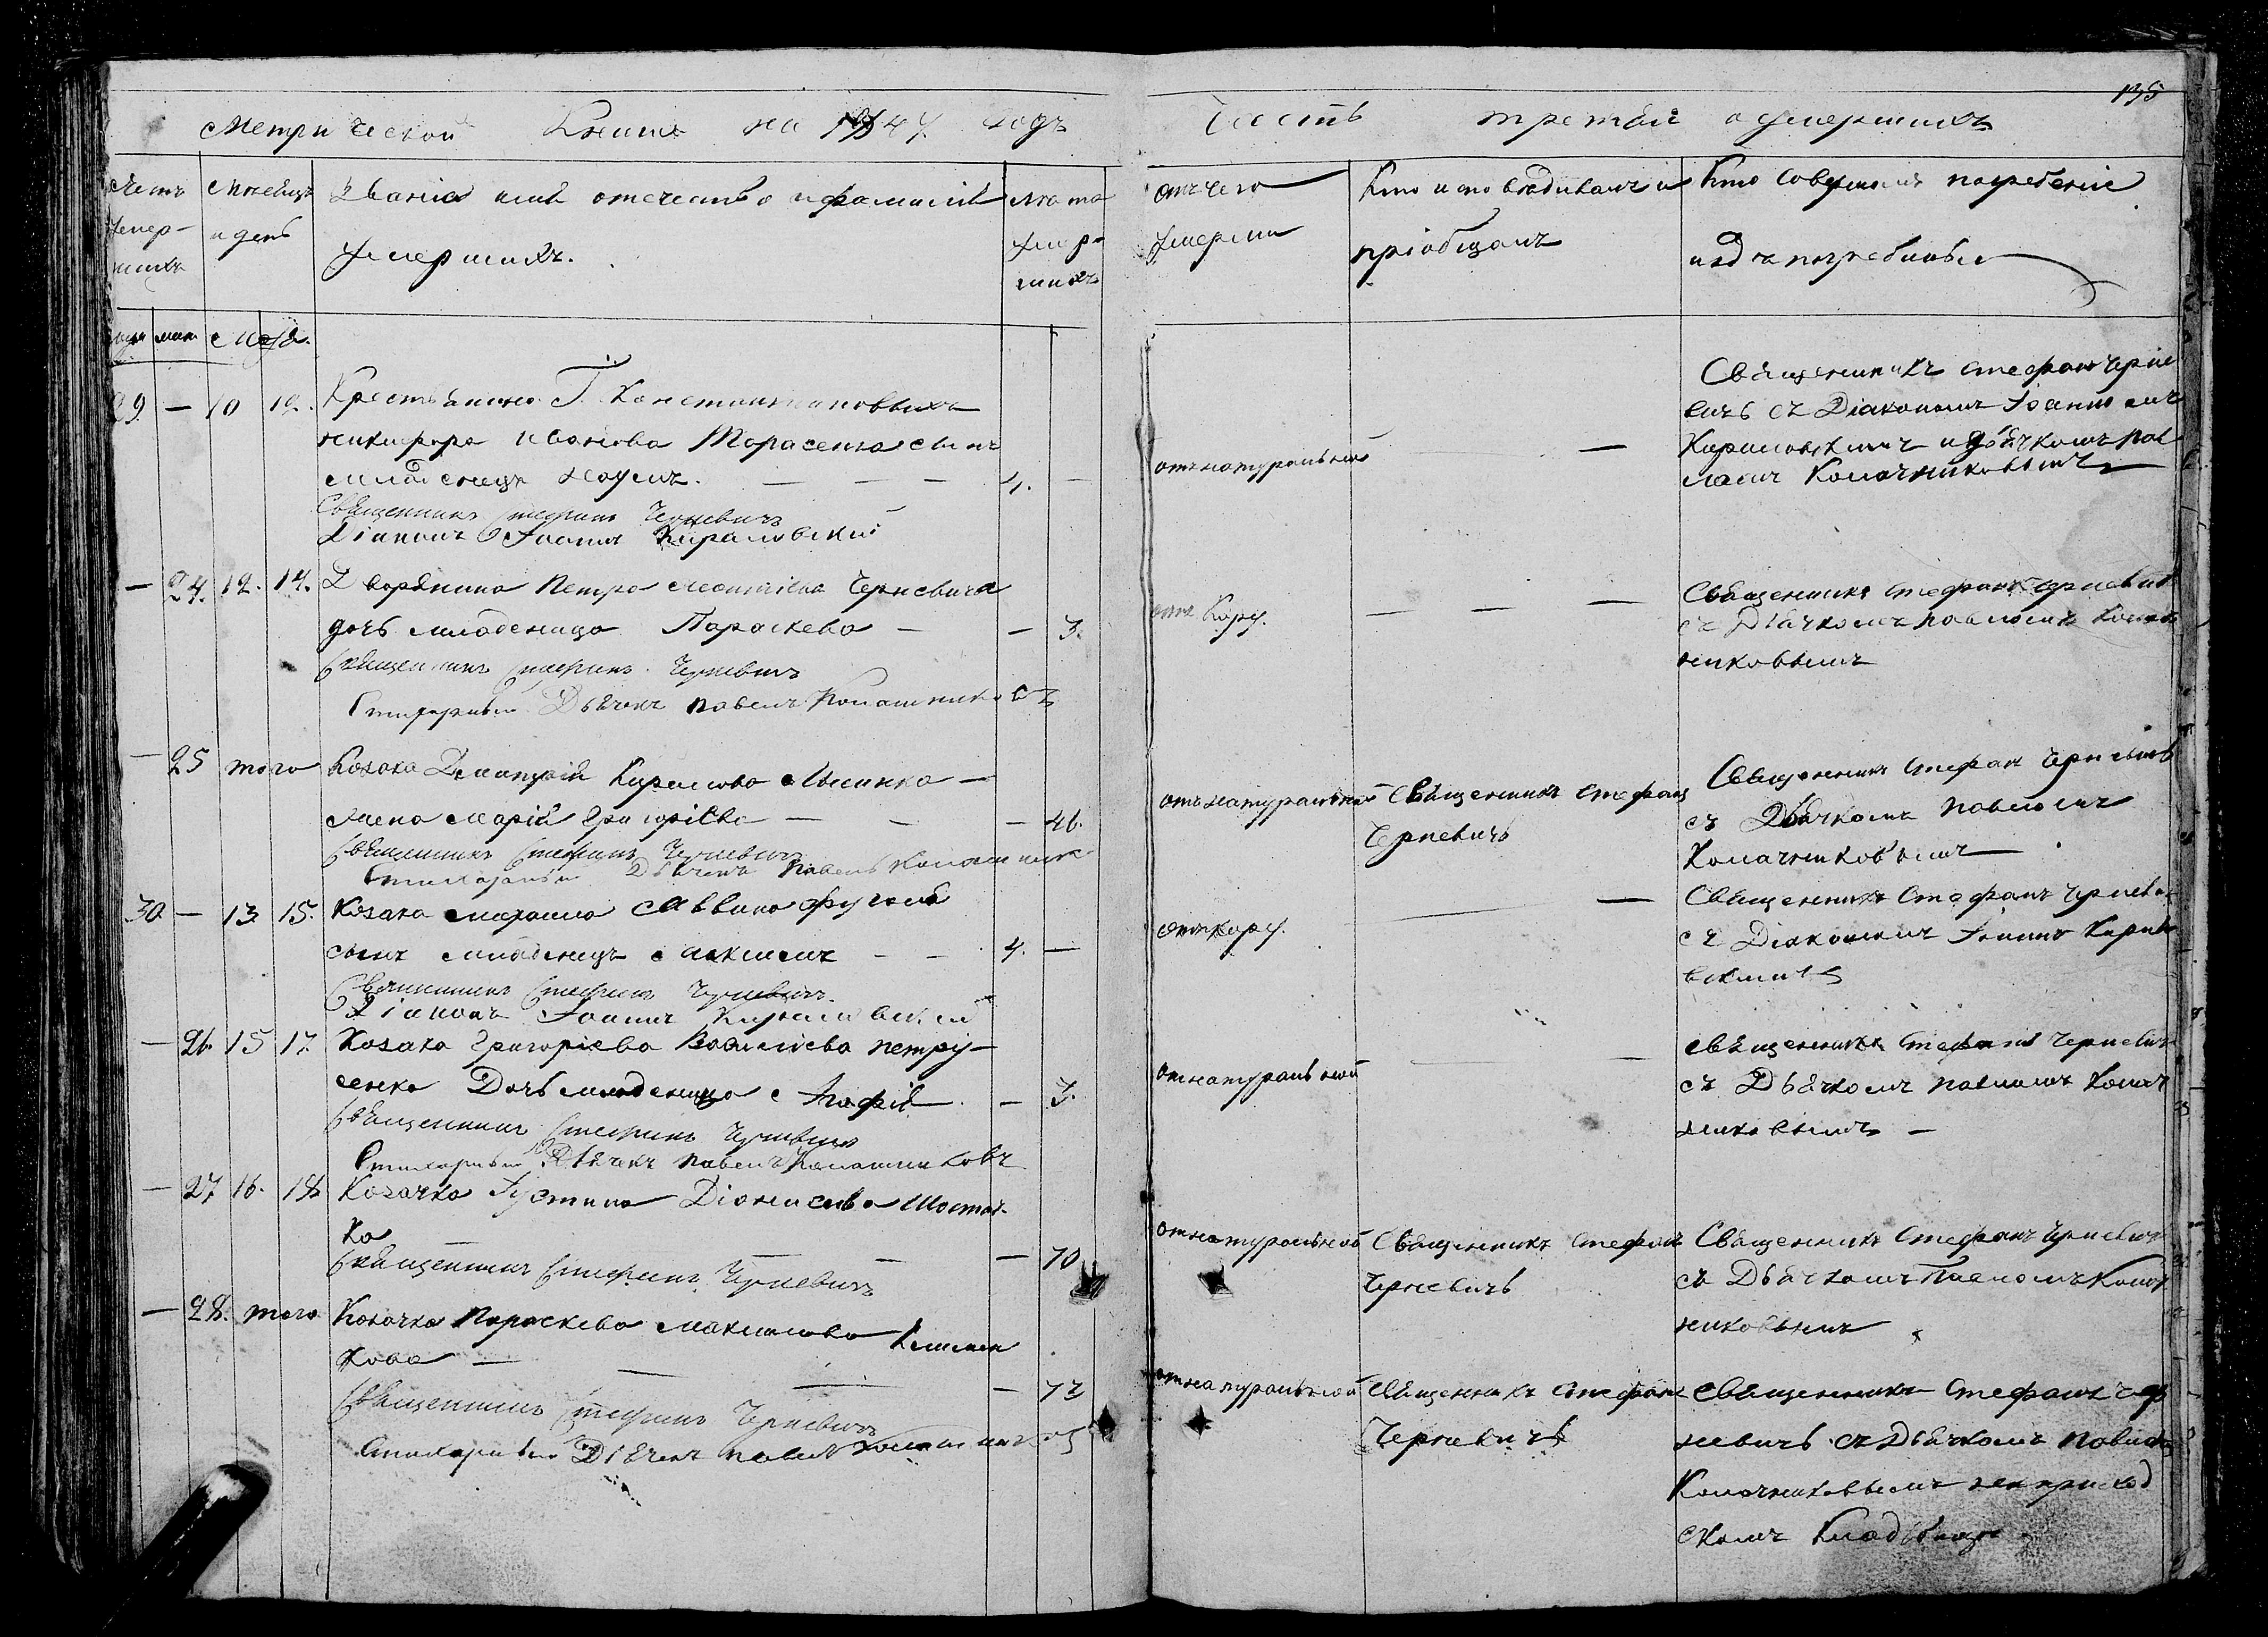 135
Метрической Книги на 1847 годъ
Часть третая о умершихъ
Счетъ умер-шихъ
Месяцъ и день
Званiе имя отечество и фамилiя умершихъ.
лета умер-шихъ
отъ чего умерли
Кто исповедивалъ и прiобщалъ
Кто совершалъ погребенiе и где погребены
муж жен Маiя.
29 — 10 12. Крестьянина Г. Константиновыхъ
никифора иванова Тарасенка сынъ
младенецъ наумъ. — — — 4. —
Священникъ Стефанъ Черневичъ
Дiаконъ Iоаннъ Кириловскiй
отъ натуральной —
Священникъ Стефанъ Черне
вичъ съ Дiакономъ Iоанномъ
Кириловскимъ и дьячкомъ Пав
ломъ Колачниковымъ
— 24. 12. 14. Дворянина Петра Леонтiева Черневича
дочь младеница Параскева — — 3.
Священникъ Стефанъ Черневичъ
Стихарный Дьячекъ Павелъ Колачниковъ
отъ Кору. — — —
Священникъ Стефанъ Черневичъ
съ Дьячкомъ Павломъ Колач
никовымъ
— 25 того Козака Димитрiя Кирилова —
жена Марiя Григорiева — — — 46.
Священникъ Стефанъ Черневичъ
Стихарный Дьячекъ Павелъ Колачник
отъ натуральной Священникъ Стефанъ
Черневичъ
Священникъ Стефан Черневичъ
съ Дьячкомъ Павломъ
Колачниковымъ
30 — 13 15. Козака Михаила Саввина
сынъ младенецъ Максимъ — — 4. —
Священникъ Стефанъ Черневичъ.
Дiаконъ Iоаннъ Кириловскiй
отъ кору. —
Священникъ Стефанъ Черневич
съ Дiакономъ Iоанн Кирило
вскимъ
— 26. 15 17. Козака Григорiева Василiева Петру-
сенка Дочь младеница Агафiя — 3.
Священникъ Стефанъ Черневичъ
Стихарный Дьячекъ Павелъ Колачниковъ
от натуральной —
Священникъ Стефанъ Черневичъ
съ Дьячкомъ Павломъ Колач
никовымъ —
— 27 16. 18. Козачка Iустина Дiонисiева Шостач-
ка — 70
Священникъ Стефанъ Черневичъ
от натуральной Священникъ Стефанъ
Черневичъ
Священникъ Стефанъ Черневичъ
съ Дьячкомъ Павломъ Колач
никовымъ
— 28. того Козачка Параскева Максимова
кова — — — — 72
Священникъ Стефанъ Черневичъ
Стихарный Дьячекъ Павел Колачниковъ
от натуральной Священникъ Стефанъ
Черневичъ
Священникъ Стефанъ Чер
невичъ съ Дьячкомъ Павлом
Колачниковымъ на приход
скомъ Кладбище